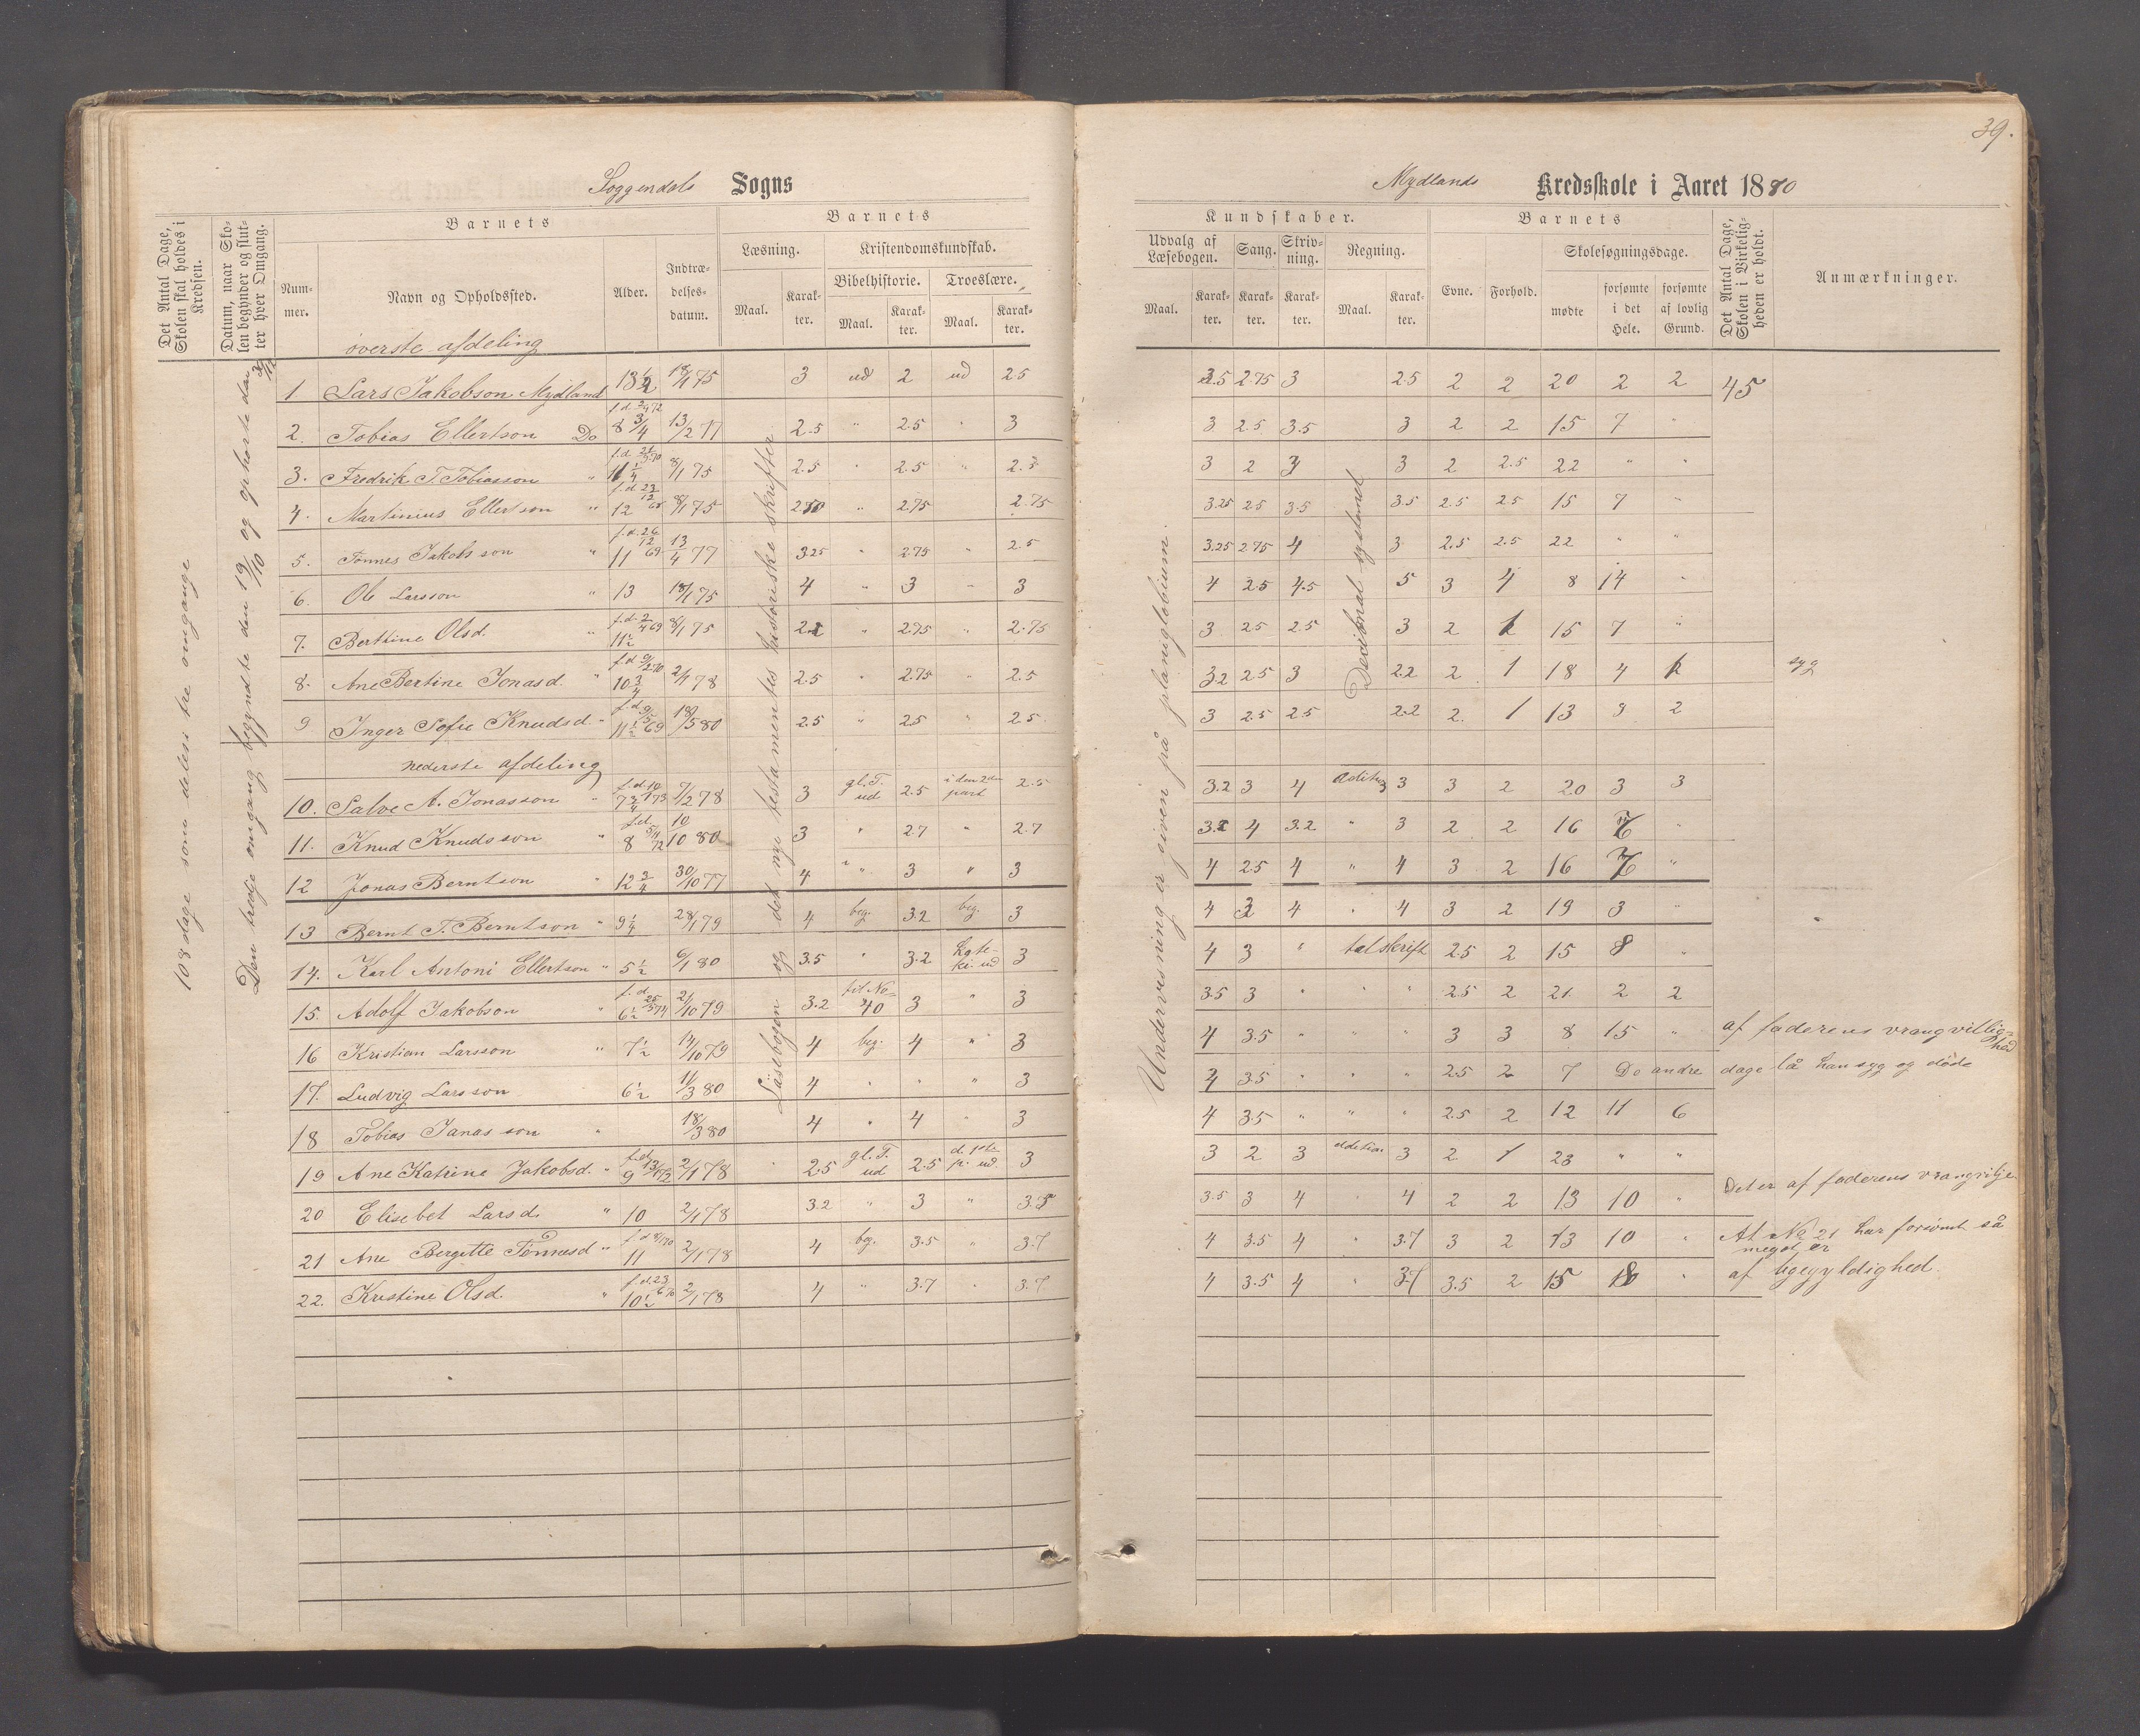 39.
Soggendals Sogns
Mydlands Kredsskole i Aaret 1880
Det Antal Dage, Skolen skal holdes i Kredsen.
Datum, naar Skolen begynder og slutter hver Omgang.
Barnets
Nummer.
Navn og Opholdssted.
Alder.
Indtrædelsesdatum.
Barnets
Læsning.
Kristendomskundskab.
Bibelhistorie.
Troeslære.
Maal. Karakter. Maal. Karakter. Maal. Karakter.
Kundskaber.
Udvalg af Læsebogen.
Sang.
Skrivning.
Regning.
Maal. Karakter. Karakter. Karakter. Maal. Karakter.
Barnets
Evne. Forhold.
Skolesøgningsdage.
mødte
forsømte i det Hele.
forsømte af lovlig Grund.
Det Antal Dage, Skolen i Virkeligheden er holdt.
Anmærkninger.
108 dage som deles i tre omgange
Den tredje omgang begyndte den 19/10 og ophørte den
Læsebogen og det nye testamentes historiske skrifter
Undervisning er given på planiglobium.
Decimal systemet
øverste afdeling
1 Lars Jakobson Mydland 13 1/2 18/1 75 3 ud 2 ud 2.5 3.5 2.75 3 2.5 2 2 20 2 2 45
2. Tobias Ellertson Do 8 3/4 13/2 77 2.5 " 2.5 " 3 3 2.5 3.5 3 2 2 15 7 "
3. Fredrik T. Tobiasson " 11 1/4 8/1 75 2.5 " 2.5 " 2.5 3 2 3 3 2 2.5 22 " "
4. Martinius Ellertson " 12 8/1 75 " 2.75 2.75 3.25 2.5 3.5 3.5 2.5 2.5 15 7 "
5. Tønnes Jakobsson " 11 13/4 77 3.25 " 2.75 " 2.5 3.25 2.75 4 3 2.5 2.5 22 " "
6. Ole Larsson " 13 18/1 75 4 " 3 " 3 4 2.5 4.5 5 3 4 8 14 "
7. Berthine Olsd. " 11 1/2 8/1 75 " 2.75 " 2.75 3 2.5 2.5 3 2 15 7 "
8. Ane Bertine Jonasd. " 10 3/4 2/1 78 2.5 " 2.75 " 2.5 3.2 2.5 3 2.2 2 1 18 4 syg
9 Inger Sofie Knudsd. " 11 1/2 18/5 80 2.5 " 2.5 " 2.5 3 2.5 2.5 2.2 2. 1 13 3 2
nederste afdeling
10. Salve A. Jonasson " 7 3/4 7/2 78 3 gl. T. ud 2.5 i den 2den part 2.5 3.2 3 4 3 3 2 20 3 3
11. Knud Knudsson " 8 10/10 80 3 " 2.7 " 2.7 4 3.2 " 3 2 2 16 "
12 Jonas Berntson " 12 3/4 30/10 77 4 " 3 " 3 4 2.5 4 " 4 3 2 16 "
13 Bernt T. Berntson " 9 1/4 28/1 79 4 beg. 3.2 beg. 3 4 4 " 4 3 2 19 3 "
14. Karl Antoni Ellertson " 5 1/2 6/1 80 3.5 " 3.2 3 4 3 " talskrift 2.5 2 15 8 "
15. Adolf Jakobson " 6 1/2 21/10 79 3.2 til No 40 3 " 3 3.5 3 " " " 2.5 2 21. 2 2
16 Kristian Larsson " 7 1/2 14/10 79 4 beg. 4 " 3 4 3.5 " " " 3 3 8 15 " af faderens vrangvillighed
17. Ludvig Larsson 6 1/2 11/3 80 4 " " " 3 3.5 " " " 2.5 2 7 De andre dage lå han syg og døde
18 Tobias Janasson " 18/3 80 4 " 4 " 3 4 3.5 " " " 2.5 2 12 11 6
19 Ane Katrine Jakobsd. " 9 2/1 78 2.5 gl. T. ud 2.5 3 3 2 3 3 2 1 23 " "
20 Elisebet Larsd. " 10 2/1 78 3.2 " 3 " 3.5 3 4 " 4 2 2 13 10 " Det er af faderens vrangvilje
21 Ane Bergitte Tønnesd " 11 2/1 78 4 beg. 3.5 " 3.7 4 3.5 4 " 3.7 3 2 13 10 " At No 21 har forsømt så meget er
22. Kristine Olsd. " 10 1/2 2/1 78 4 " 3.7 " 3.7 4 3.5 4 " 3.7 3.5 2 15 " af ligegyldighed.